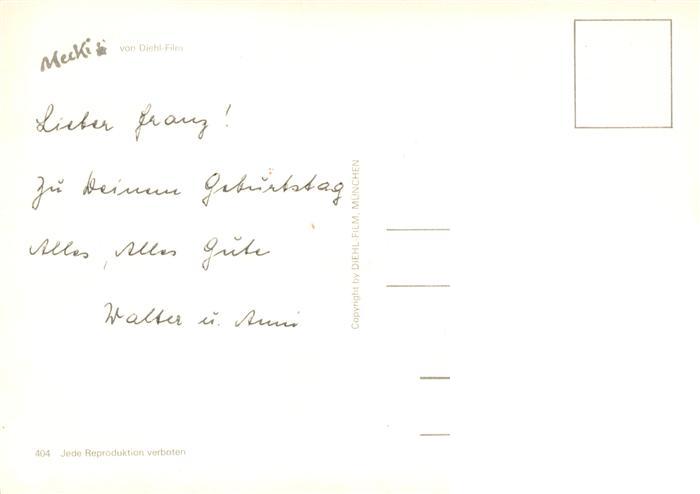 Mecki von Diehl-Film
Lieber Franz!
Zu Deinem Geburtstag
Alles, Alles Gute
Walter u. Anni
Copyright by DIEHL-FILM, MÜNCHEN
404 Jede Reproduktion verboten